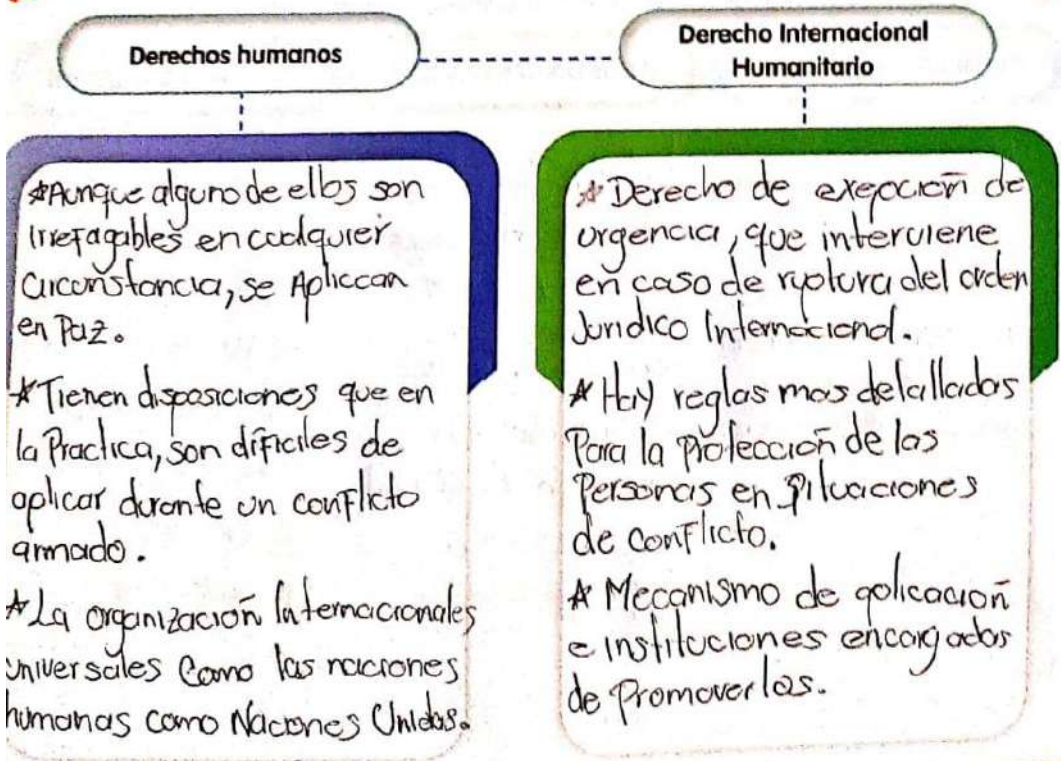 Derechos humanos
Derecho Internacional
Humanitario
*Aunque alguno de ellos son
irrefagables en cualquier
circunstancia, se Apliccan
en Paz.
*Tienen disposiciones que en
la Practica, son dificiles de
aplicar durante un conflicto
armado.
*La organización Internacionales
universales Como las naciones
humanas como Naciones Unidas.
*Derecho de exepción de
urgencia, que interviene
en caso de ruptura del orden
Juridico Internacional.
*Hay reglas mas detalladas
Para la Protección de las
Personas en situaciones
de conflicto.
*Mecanismo de aplicación
e instituciones encargados
de Promoverlos.